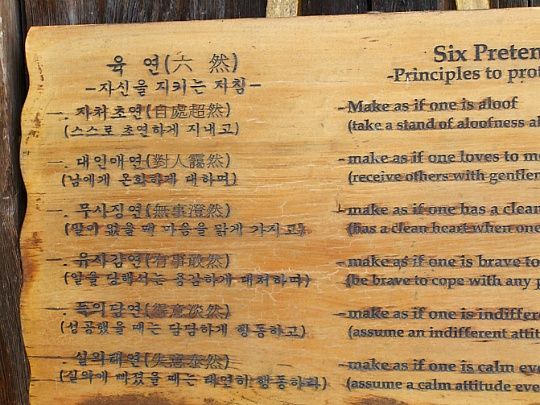 육 연(六 然)
-자신을 지키는 지침-
一. 자처초연(自處超然)
(스스로 초연하게 지내고)
一. 대인애연(對人靄然)
(남에게 온화하게 대하며)
一. 무사징연(無事澄然)
(일이 없을 때 마음을 맑게 가지고)
一. 유사감연(有事敢然)
(일을 당해서는 용감하게 대처하며)
一. 득의담연(得意淡然)
(성공했을 때는 담담하게 행동하고)
一. 실의태연(失意泰然)
(실의에 빠졌을 때는 태연히 행동하라)
Six Preten
-Principles to prot
-Make as if one is aloof
(take a stand of aloofness a
-make as if one loves to m
(receive others with gentlen
-make as if one has a clean
(has a clean heart when one
-make as if one is brave to
(be brave to cope with any p
-make as if one is indiffere
(assume an indifferent attit
-make as if one is calm eve
(assume a calm attitude eve